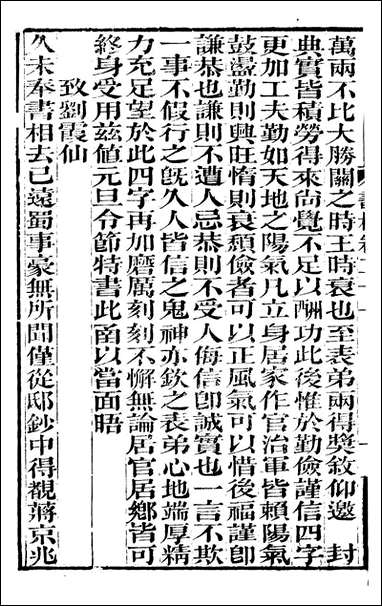 萬兩不比大勝關之時王時衰也至表弟兩得獎敘仰邀 封
典實皆積勞得來尙覺不足以酬功此後惟於勤儉謹信四字
更加工夫勤如天地之陽氣凡立身居家作官治軍皆賴陽氣
鼓盪勤則興旺惰則衰頹儉者可以正風氣可以惜後福謹卽
謙恭也謙則不遭人忌恭則不受人侮信卽誠實也一言不欺
一事不假行之旣久人皆信之鬼神亦欽之表弟心地端厚精
力充足望於此四字再加磨厲刻刻不懈無論居官居鄉皆可
終身受用茲值元旦令節特書此函以當面晤
致劉霞仙
久未奉書相去已遠蜀事豪無所聞僅從邸鈔中得覩蔣京兆